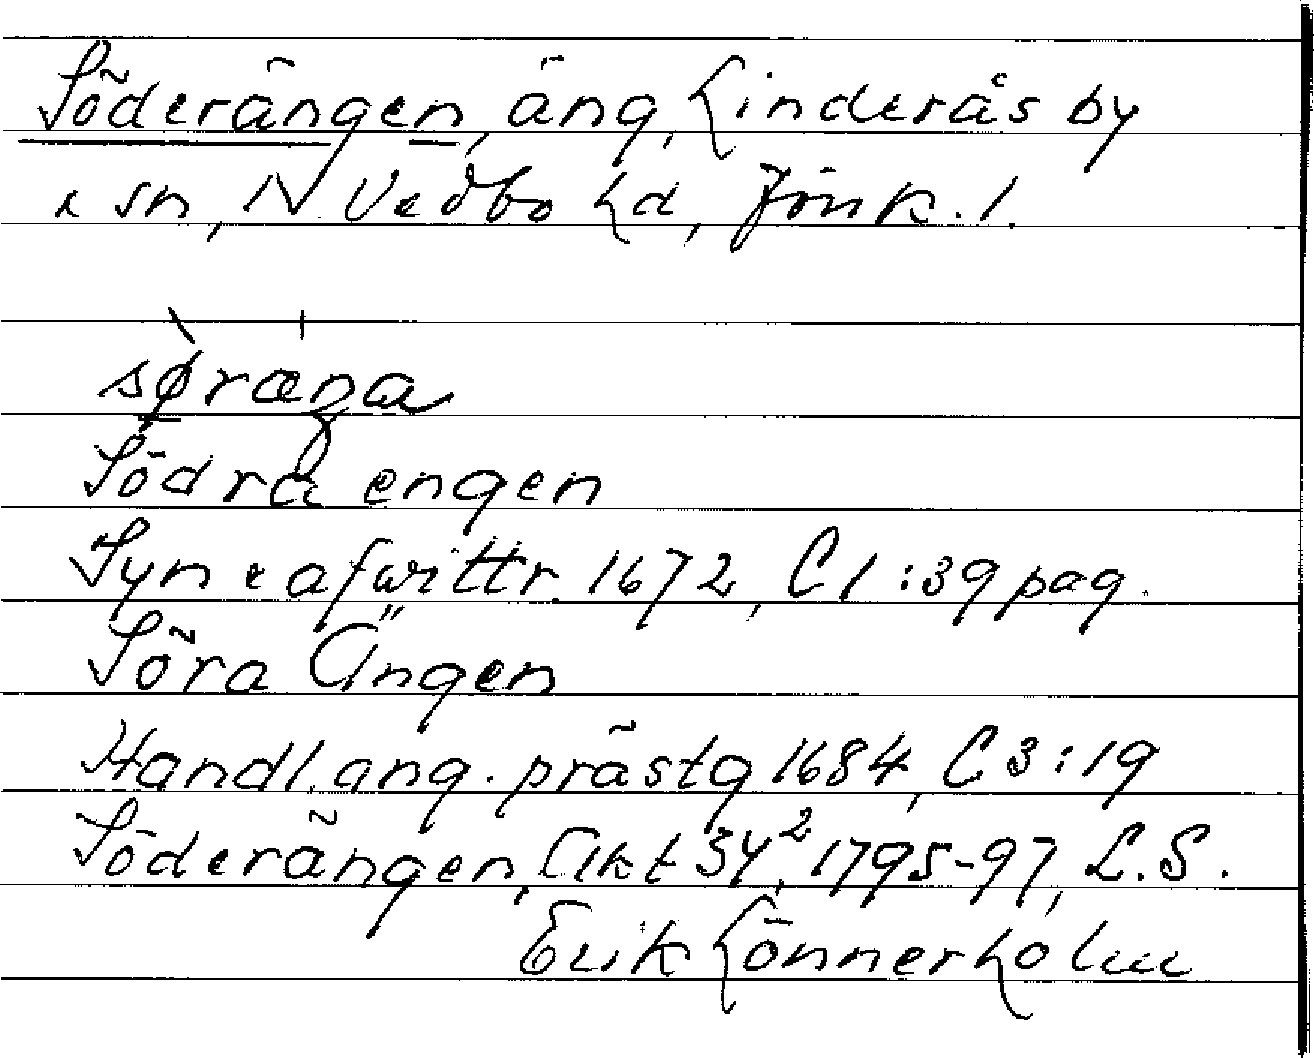 Söderängen, äng, Linderås by
& sn, N. Vedbo hd, Jönk. l.
sø̀ræ̍ŋa
Södra engen
Syn & afwittr. 1672, C1:39 pag.
Söra Ängen
Handl. ang. prästg 1684, C3:19
Söderängen, Akt 34², 1795-97, L.S.
Erik Lönnerholm